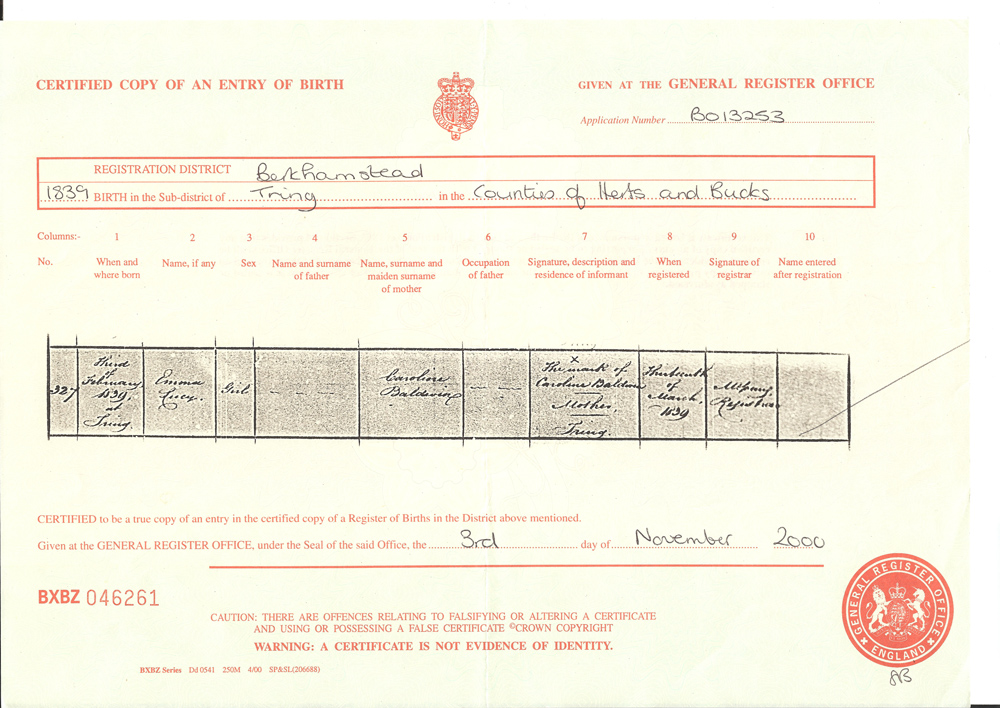 CERTIFIED COPY OF AN ENTRY OF BIRTH
GIVEN AT THE GENERAL REGISTER OFFICE
Application Number B013253
REGISTRATION DISTRICT Berkhamstead
1839 BIRTH in the Sub-district of Tring in the Counties of Herts and Bucks
Columns:- 1 2 3 4 5 6 7 8 9 10
No. When and where born Name, if any Sex Name and surname of father Name, surname and maiden surname of mother Occupation of father Signature, description and residence of informant When registered Signature of registrar Name entered after registration
327
Third
of
February
1839.
at
Tring.
Emma
Lucy.
Girl
Caroline
Baldwin
X
The mark of
Caroline Baldwin
Mother.
Tring.
Thirteenth
of
March.
1839
Registrar
CERTIFIED to be a true copy of an entry in the certified copy of a Register of Births in the District above mentioned.
Given at the GENERAL REGISTER OFFICE, under the Seal of the said Office, the 3rd day of November 2000
BXBZ 046261
CAUTION: THERE ARE OFFENCES RELATING TO FALSIFYING OR ALTERING A CERTIFICATE
AND USING OR POSSESSING A FALSE CERTIFICATE ©CROWN COPYRIGHT
WARNING: A CERTIFICATE IS NOT EVIDENCE OF IDENTITY.
BXBZ Series Dd 0541 250M 4/00 SP&SL(206688)
GENERAL REGISTER OFFICE
ENGLAND